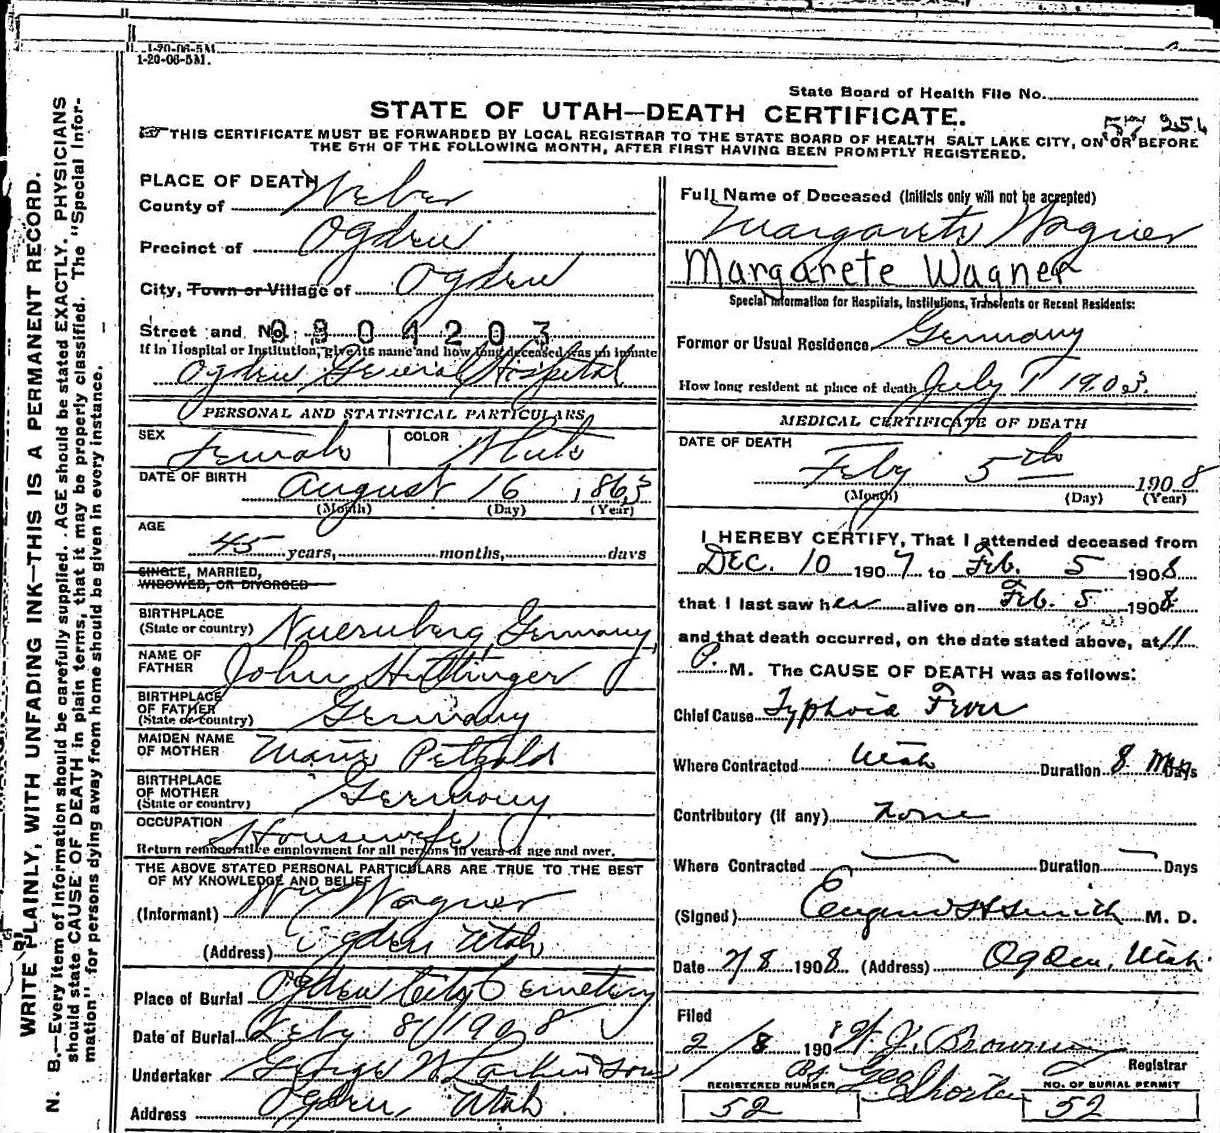 1-20-06-5M.
1-20-06-5M.
State Board of Health File No.
STATE OF UTAH—DEATH CERTIFICATE.
57 256
☞ THIS CERTIFICATE MUST BE FORWARDED BY LOCAL REGISTRAR TO THE STATE BOARD OF HEALTH SALT LAKE CITY, ON OR BEFORE
THE 5TH OF THE FOLLOWING MONTH, AFTER FIRST HAVING BEEN PROMPTLY REGISTERED.
WRITE PLAINLY, WITH UNFADING INK—THIS IS A PERMANENT RECORD.
N. B.—Every item of information should be carefully supplied. AGE should be stated EXACTLY. PHYSICIANS
should state CAUSE OF DEATH in plain terms, that it may be properly classified. The "Special Infor-
mation" for persons dying away from home should be given in every instance.
PLACE OF DEATH
County of Weber
Precinct of Ogden
City, Town or Village of Ogden
Street and No. 0904203
If in Hospital or Institution, give its name and how long deceased was an inmate
Ogden General Hospital
PERSONAL AND STATISTICAL PARTICULARS
SEX Female COLOR White
DATE OF BIRTH
August 16 1863
(Month) (Day) (Year)
AGE
45 years, months, days
SINGLE, MARRIED,
WIDOWED, OR DIVORCED
BIRTHPLACE
(State or country) Nuernberg, Germany
NAME OF
FATHER John Huttinger
BIRTHPLACE
OF FATHER
(State or country) Germany
MAIDEN NAME
OF MOTHER Marie Petzold
BIRTHPLACE
OF MOTHER
(State or country) Germany
OCCUPATION Housewife
Return remunerative employment for all persons 10 years of age and over.
THE ABOVE STATED PERSONAL PARTICULARS ARE TRUE TO THE BEST
OF MY KNOWLEDGE AND BELIEF
(Informant) Wm Wagner
(Address) Ogden Utah
Place of Burial Ogden City Cemetery
Date of Burial Feby 8/1908
Undertaker George W. Larkin & Sons
Address Ogden, Utah
Full Name of Deceased (Initials only will not be accepted)
Margarete Wagner
Margarete Wagner
Special Information for Hospitals, Institutions, Transients or Recent Residents:
Former or Usual Residence Germany
How long resident at place of death July 1 1903.
MEDICAL CERTIFICATE OF DEATH
DATE OF DEATH
Feby 5th 1908
(Month) (Day) (Year)
I HEREBY CERTIFY, That I attended deceased from
DEC. 10 1907 to Feb. 5 1908
that I last saw her alive on Feb. 5 1908
and that death occurred, on the date stated above, at 11
P. M. The CAUSE OF DEATH was as follows:
Chief Cause Typhoid Fever
Where Contracted Utah Duration 8 Days
Contributory (if any) None
Where Contracted — Duration — Days
(Signed) Eugene H Smith M. D.
Date 2/8 1908 (Address) Ogden, Utah.
Filed
2/8 1908 W. J. Browning
Registrar
By Geo Shorten
REGISTERED NUMBER 52
NO. OF BURIAL PERMIT 52